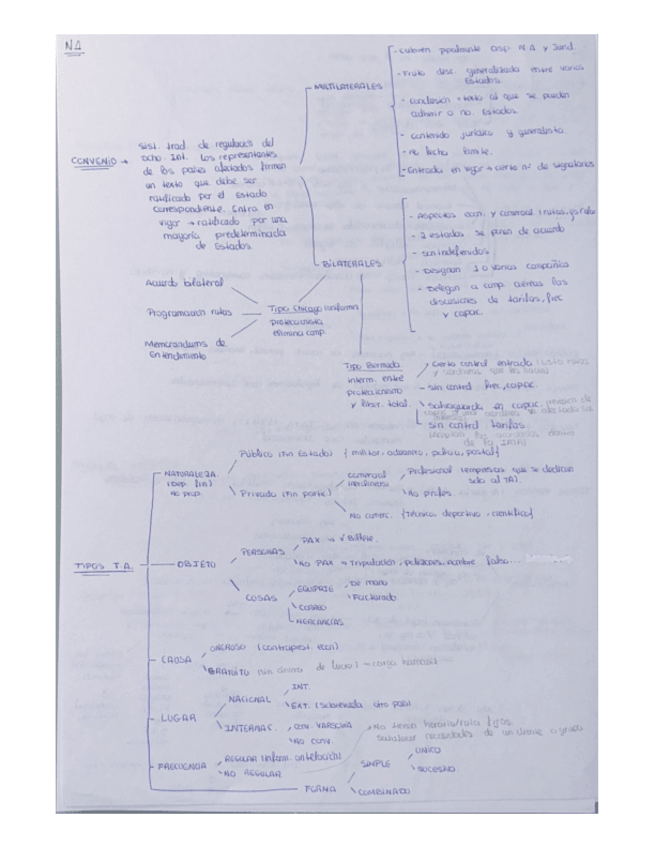 NA
CONVENIO → sist. trad. de regulación del
dcho. Int. Los representantes
de los países afectados firman
un texto que debe ser
ratificado por el Estado
correspondiente. Entra en
vigor → ratificado por una
mayoría predeterminada
de Estados.
MULTILATERALES
- cubren ppalmente asp. N.A y Jurid.
- Fruto desc. generalizada entre varios
Estados.
- conclusión → texto al que se pueden
adherir o no. Estados.
- contenido jurídico y generalista
- no fecha límite.
- Entrada en vigor → cierto nº de signatarios
BILATERALES
- Aspectos econ. y comercial
- 2 estados se ponen de acuerdo
- son indefinidos
- Designan 1 o varias compañías
- Delegan a comp. aéreas las
discusiones de tarifas, frec
y capac.
Acuerdo bilateral
Programación rutas
Memorandums de
Entendimiento
Tipo Chicago
proteccionista
elimina comp.
Tipo Bermuda
interm. entre
proteccionismo
y liber. total.
cierto control entrada
- sin control frec, capac.
salvaguarda en capac.
sin control tarifas.
de la IATA)
TIPOS T.A.
NATURALEZA
(Dep. fin)
no prop.
Público (fin Estado) { militar, aduanero, policía, postal}
Privado (fin parte)
comercial
Profesional (empresas que se dedican
solo al TA).
No profes.
No comerc. {Técnico, deportivo, científico}
OBJETO
PERSONAS
PAX → √ Billete.
NO PAX → Tripulación, polizones, nombre falso...
COSAS
EQUIPAJE
De mano
Facturado
CORREO
MERCANCIAS
CAUSA
ONEROSO (contraprest. econ)
GRATUITO (sin ánimo de lucro)
LUGAR
NACIONAL
INT.
EXT. (sobrevuela otro país)
INTERNAC.
CONV. VARSOVIA
NO CONV.
FRECUENCIA
REGULAR
NO REGULAR
No tienen horario/ruta fijos.
satisfacer necesidades de un cliente o grupo
FORMA
SIMPLE
ÚNICO
SUCESIVO
COMBINADO